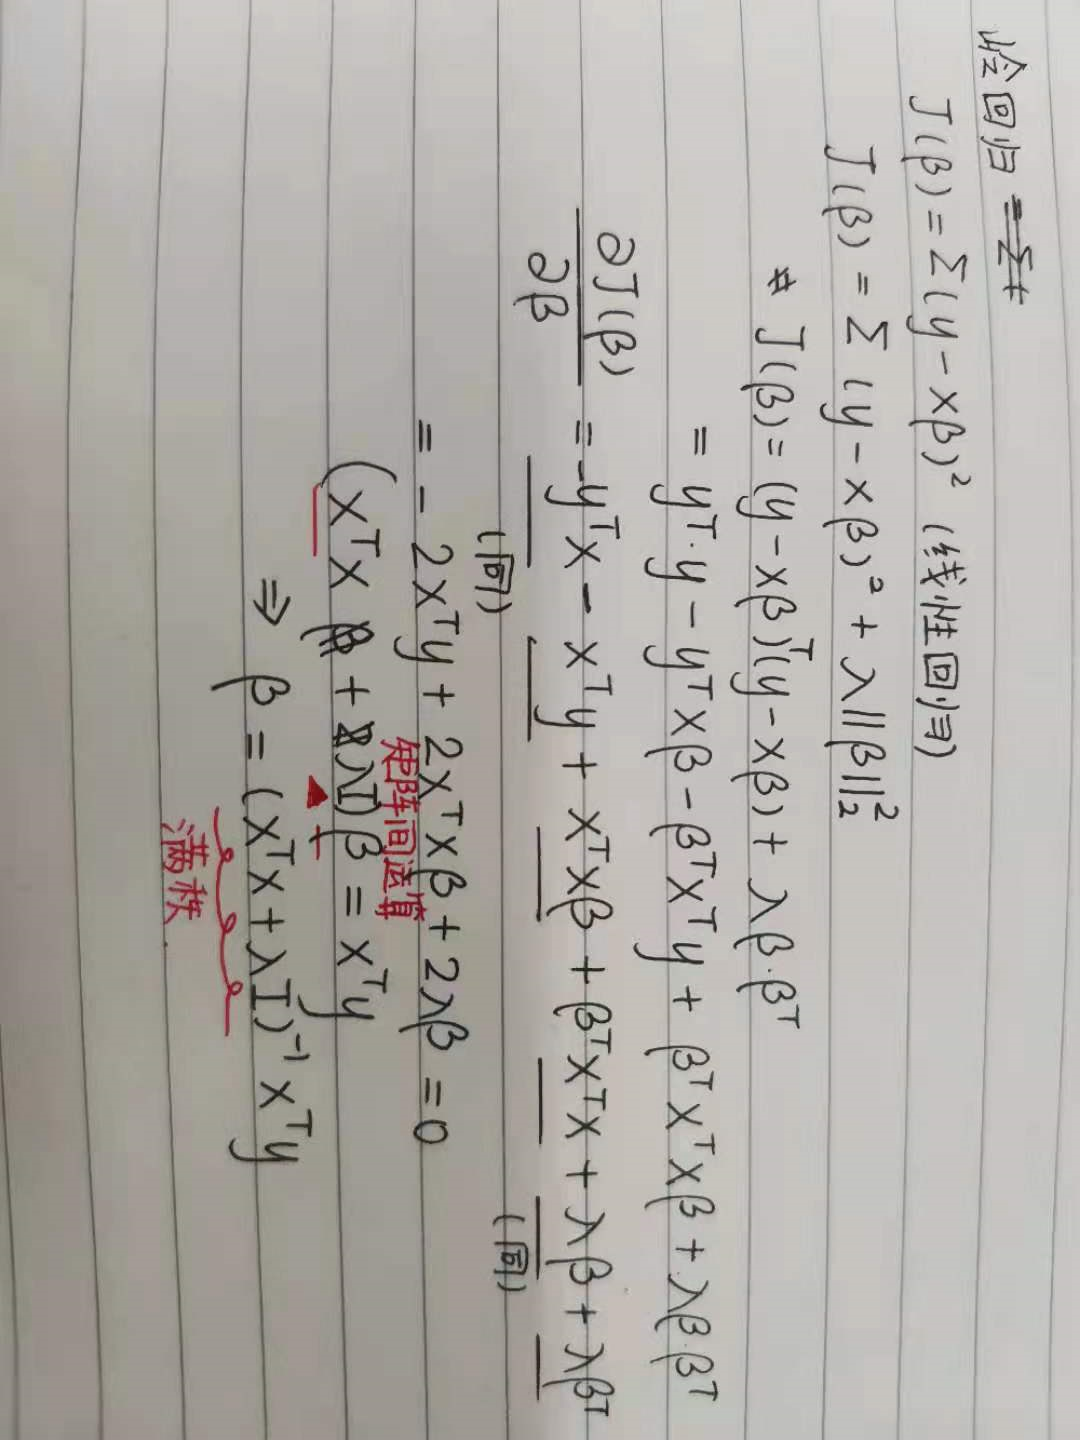 岭回归
J(β) = Σ(y - xβ)² (线性回归)
J(β) = Σ (y - xβ)² + λ||β||₂²
# J(β) = (y - xβ)ᵀ(y - xβ) + λβ·βᵀ
= yᵀ·y - yᵀxβ - βᵀxᵀy + βᵀxᵀxβ + λβ·βᵀ
∂J(β)/∂β = -yᵀx - xᵀy + xᵀxβ + βᵀxᵀx + λβ + λβᵀ
(同) (同)
= - 2xᵀy + 2xᵀxβ + 2λβ = 0
矩阵间运算
(xᵀx + λI)β = xᵀy
⇒ β = (xᵀx + λI)⁻¹ xᵀy
满秩